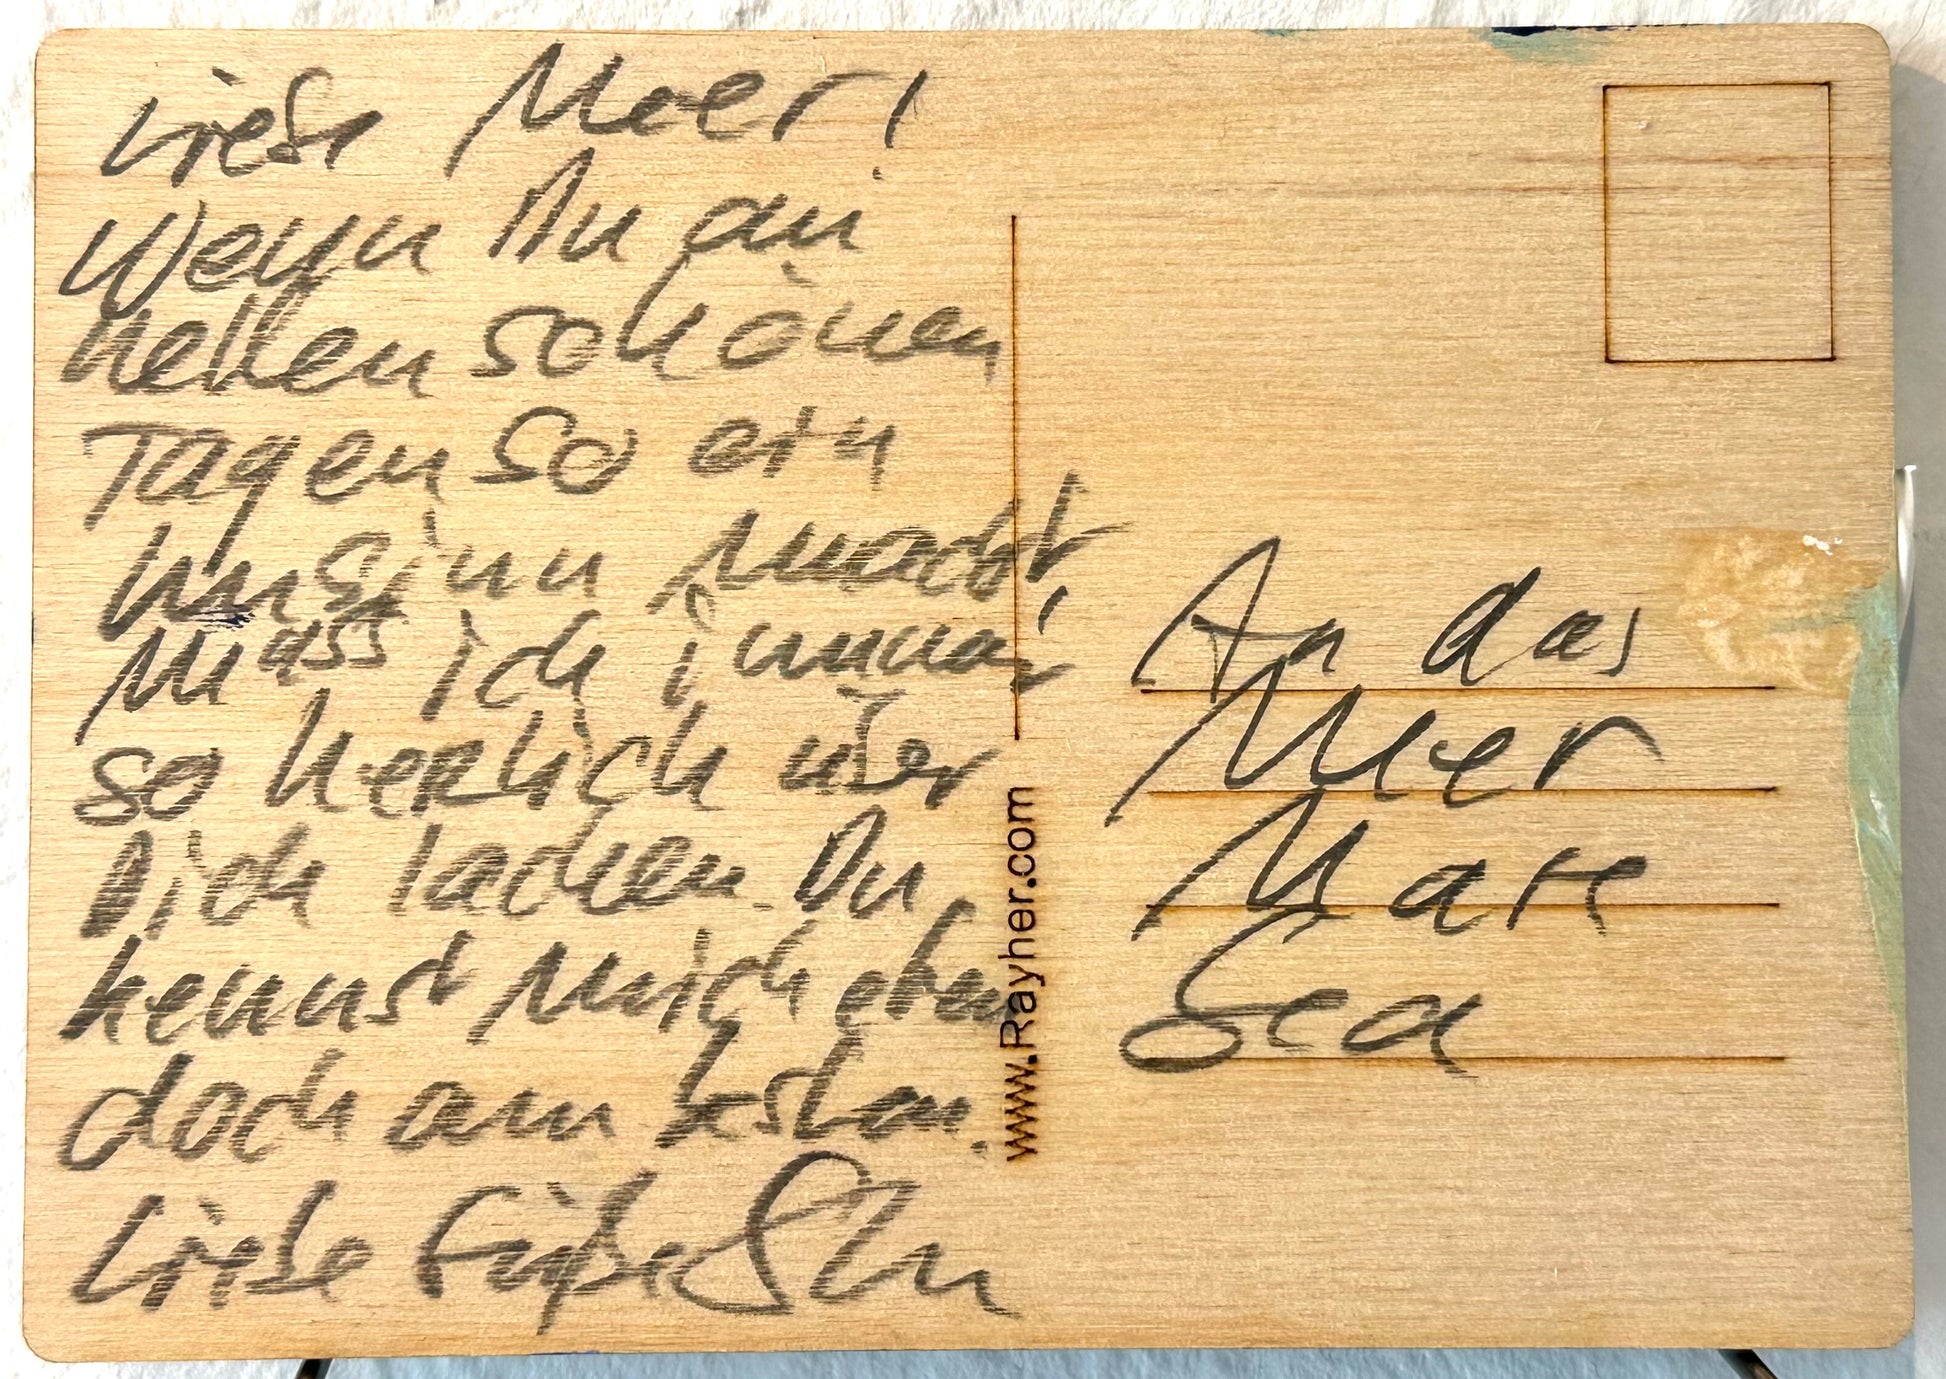 Liebe Meer!
Weyn Du an
hellen schönen
Tagen so ein
Unsinn machst,
muss ich immer
so herlich über
Dich lachen. Du
kennst mich eben
doch am besten.
Liebe Grüße
www.Rayher.com
An das
Meer
Mare
Sea